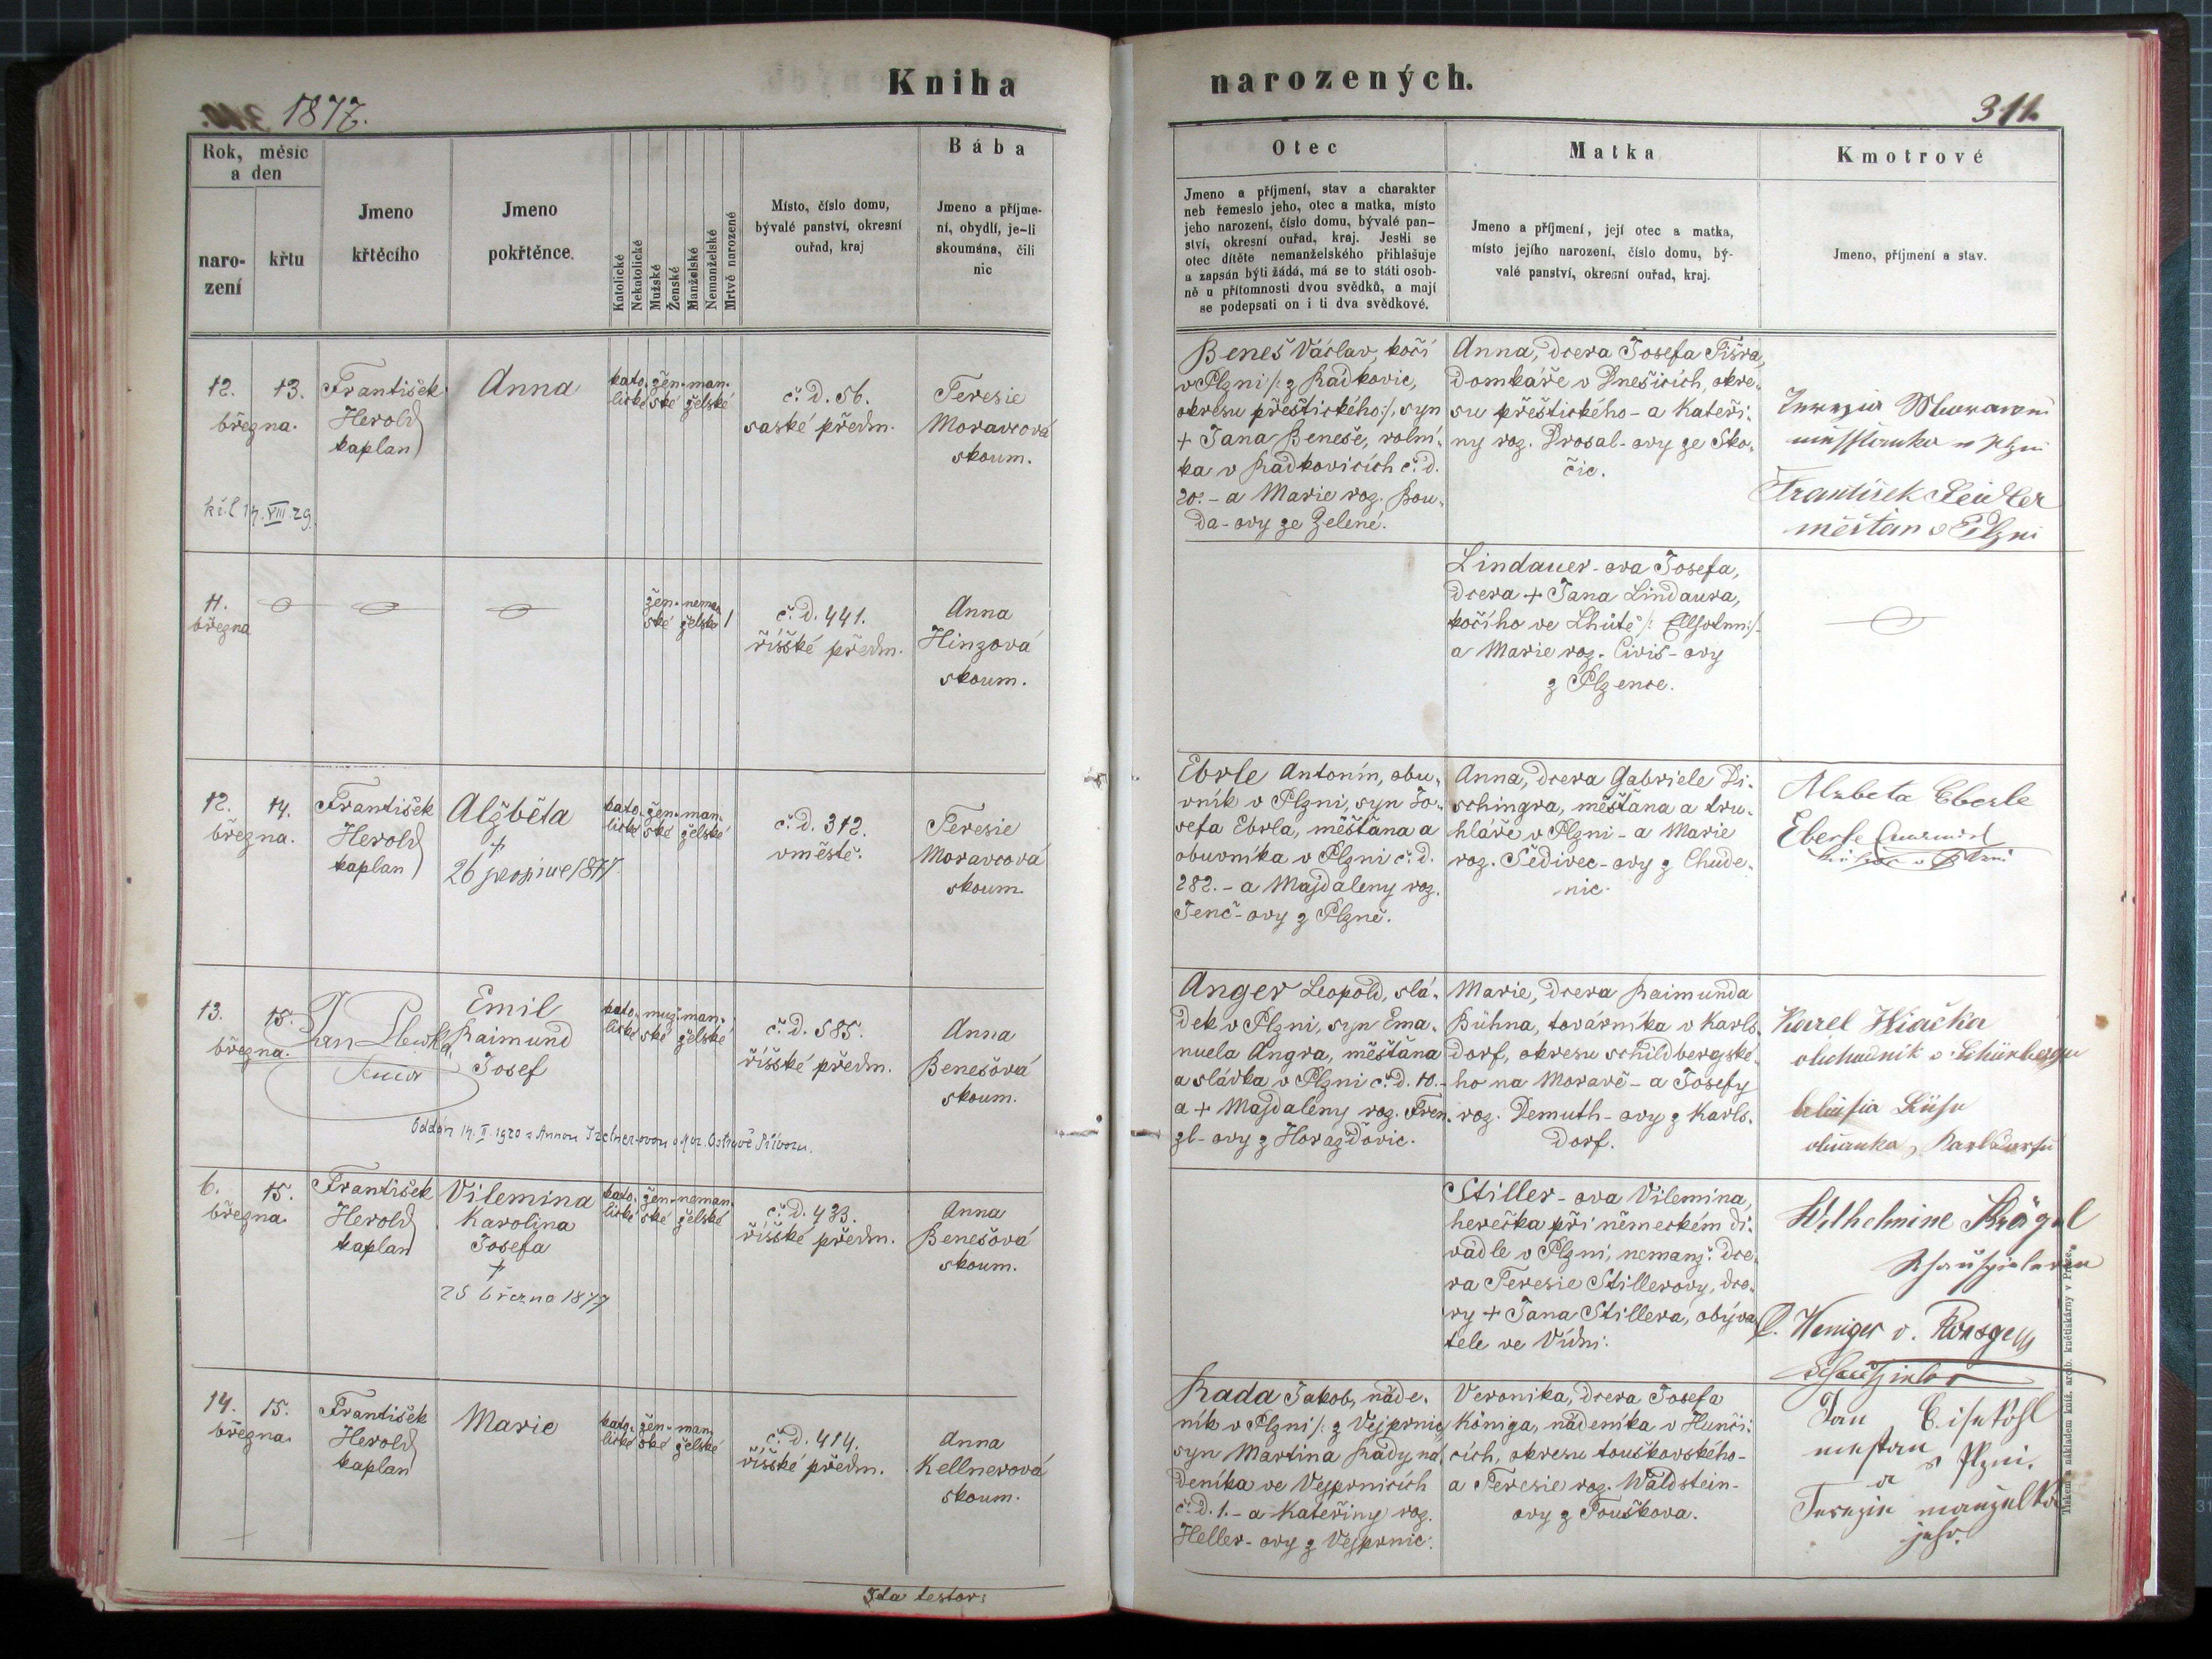 Kniha narozených.
1877.
311.
Rok, měsíc
a den
naro-
zení
křtu
Jmeno
křtěcího
Jmeno
pokřtěnce.
Katolické
Nekatolické
Mužské
Ženské
Manželské
Nemanželské
Mrtvě narozené
Místo, číslo domu,
bývalé panství, okresní
ouřad, kraj
Bába
Jmeno a příjme-
ní, obydlí, je-li
skoumána, čili
nic
Otec
Jmeno a příjmení, stav a charakter
neb řemeslo jeho, otec a matka, místo
jeho narození, číslo domu, bývalé pan-
ství, okresní ouřad, kraj. Jestli se
otec dítěte nemanželského přihlašuje
a zapsán býti žádá, má se to státi osob-
ně u přítomnosti dvou svědků, a mají
se podepsati on i ti dva svědkové.
Matka
Jmeno a příjmení, její otec a matka,
místo jejího narození, číslo domu, bý-
valé panství, okresní ouřad, kraj.
Kmotrové
Jmeno, příjmení a stav.
12. 13.
března.
František
Herold
kaplan
Anna
kato- žen- man-
lické ské želské
č. d. 56.
saské předm.
Teresie
Moravcová
skoum.
Beneš Václav, kočí
v Plzni /: z Radkovic,
okresu přeštického :/, syn
+ Jana Beneše, rolní-
ka v Radkovicích č. d.
20. - a Marie roz. Bou-
da-ovy ze Zelené.
Anna, dcera Josefa Fišra,
domkáře v Dnešicích, okre-
su přeštického - a Kateři-
ny roz. Drosal-ovy ze Sko-
čic.
František Seidler
měšťan v Plzni
VIII. 29.
11.
března
žen- neman-
ské želské /
č. d. 441.
říšské předm.
Anna
Hinzová
skoum.
Lindauer-ova Josefa,
dcera + Jana Lindaura,
kočího ve Lhůtě
a Marie roz. Civiš-ovy
z Plzence.
12. 14.
března.
František
Herold
kaplan
Alžběta
+
26 1877.
kato- žen- man-
lické ské želské
č. d. 312.
v městě.
Teresie
Moravcová
skoum.
Ebrle Antonín, obu-
vník v Plzni, syn Jo-
sefa Ebrla, měšťana a
obuvníka v Plzni č. d.
282. - a Majdaleny roz.
Jenč-ovy z Plzně.
Anna, dcera Gabriele Di-
schingra, měšťana a tru-
hláře v Plzni - a Marie
roz. Šedivec-ovy z Chude-
nic.
Alzbeta Eberle
Eberle
13. 15.
března.
Jan
Emil
Raimund
Josef
kato- muž- man-
lické ské želské
č. d. 585.
říšské předm.
Anna
Benešová
skoum.
Oddán 14. II. 1920 s Annou
Anger Leopold, slá-
dek v Plzni, syn Ema-
nuela Angra, měšťana
a sládka v Plzni č. d. 10. -
a + Majdalény roz. Fren-
zl-ovy z Horažďovic.
Marie, dcera Raimunda
Bühna, továrníka v Karls-
dorf, okresu schildbergské-
ho na Moravě - a Josefy
roz. Demuth-ovy z Karls-
dorf.
Karel
obchodník v
6. 15.
března.
František
Herold
kaplan
Vilemina
Karolina
Josefa
+
25 března 1877
kato- žen- neman-
lické ské želské
č. d. 433.
říšské předm.
Anna
Benešová
skoum.
Stiller-ova Vilemina,
herečka při německém di-
vadle v Plzni, nemanž. dce-
ra Teresie Stillerovy, dce-
ry + Jana Stillera, obyva-
tele ve Vídni.
Wilhelmine Krägel
Schauspielerin
Schauspieler
14. 15.
března.
František
Herold
kaplan
Marie
kato- žen- man-
lické ské želské
č. d. 414.
říšské předm.
Anna
Kellnerová
skoum.
Rada Jakob, náde-
ník v Plzni /: z Vejprnic,
syn Martina Rady, ná-
deníka ve Vejprnicích
č. d. 1. - a Kateřiny roz.
Heller-ovy z Vejprnic.
Veronika, dcera Josefa
Königa, nádeníka v Hunči-
cích, okresu touškovského -
a Teresie roz. Waldstein-
ovy z Touškova.
Jan
měšťan v Plzni.
a
Terezie manželka
jeho.
Ita testor:
Tiskem a nákladem kníž. arcib. knihtiskárny v Praze.